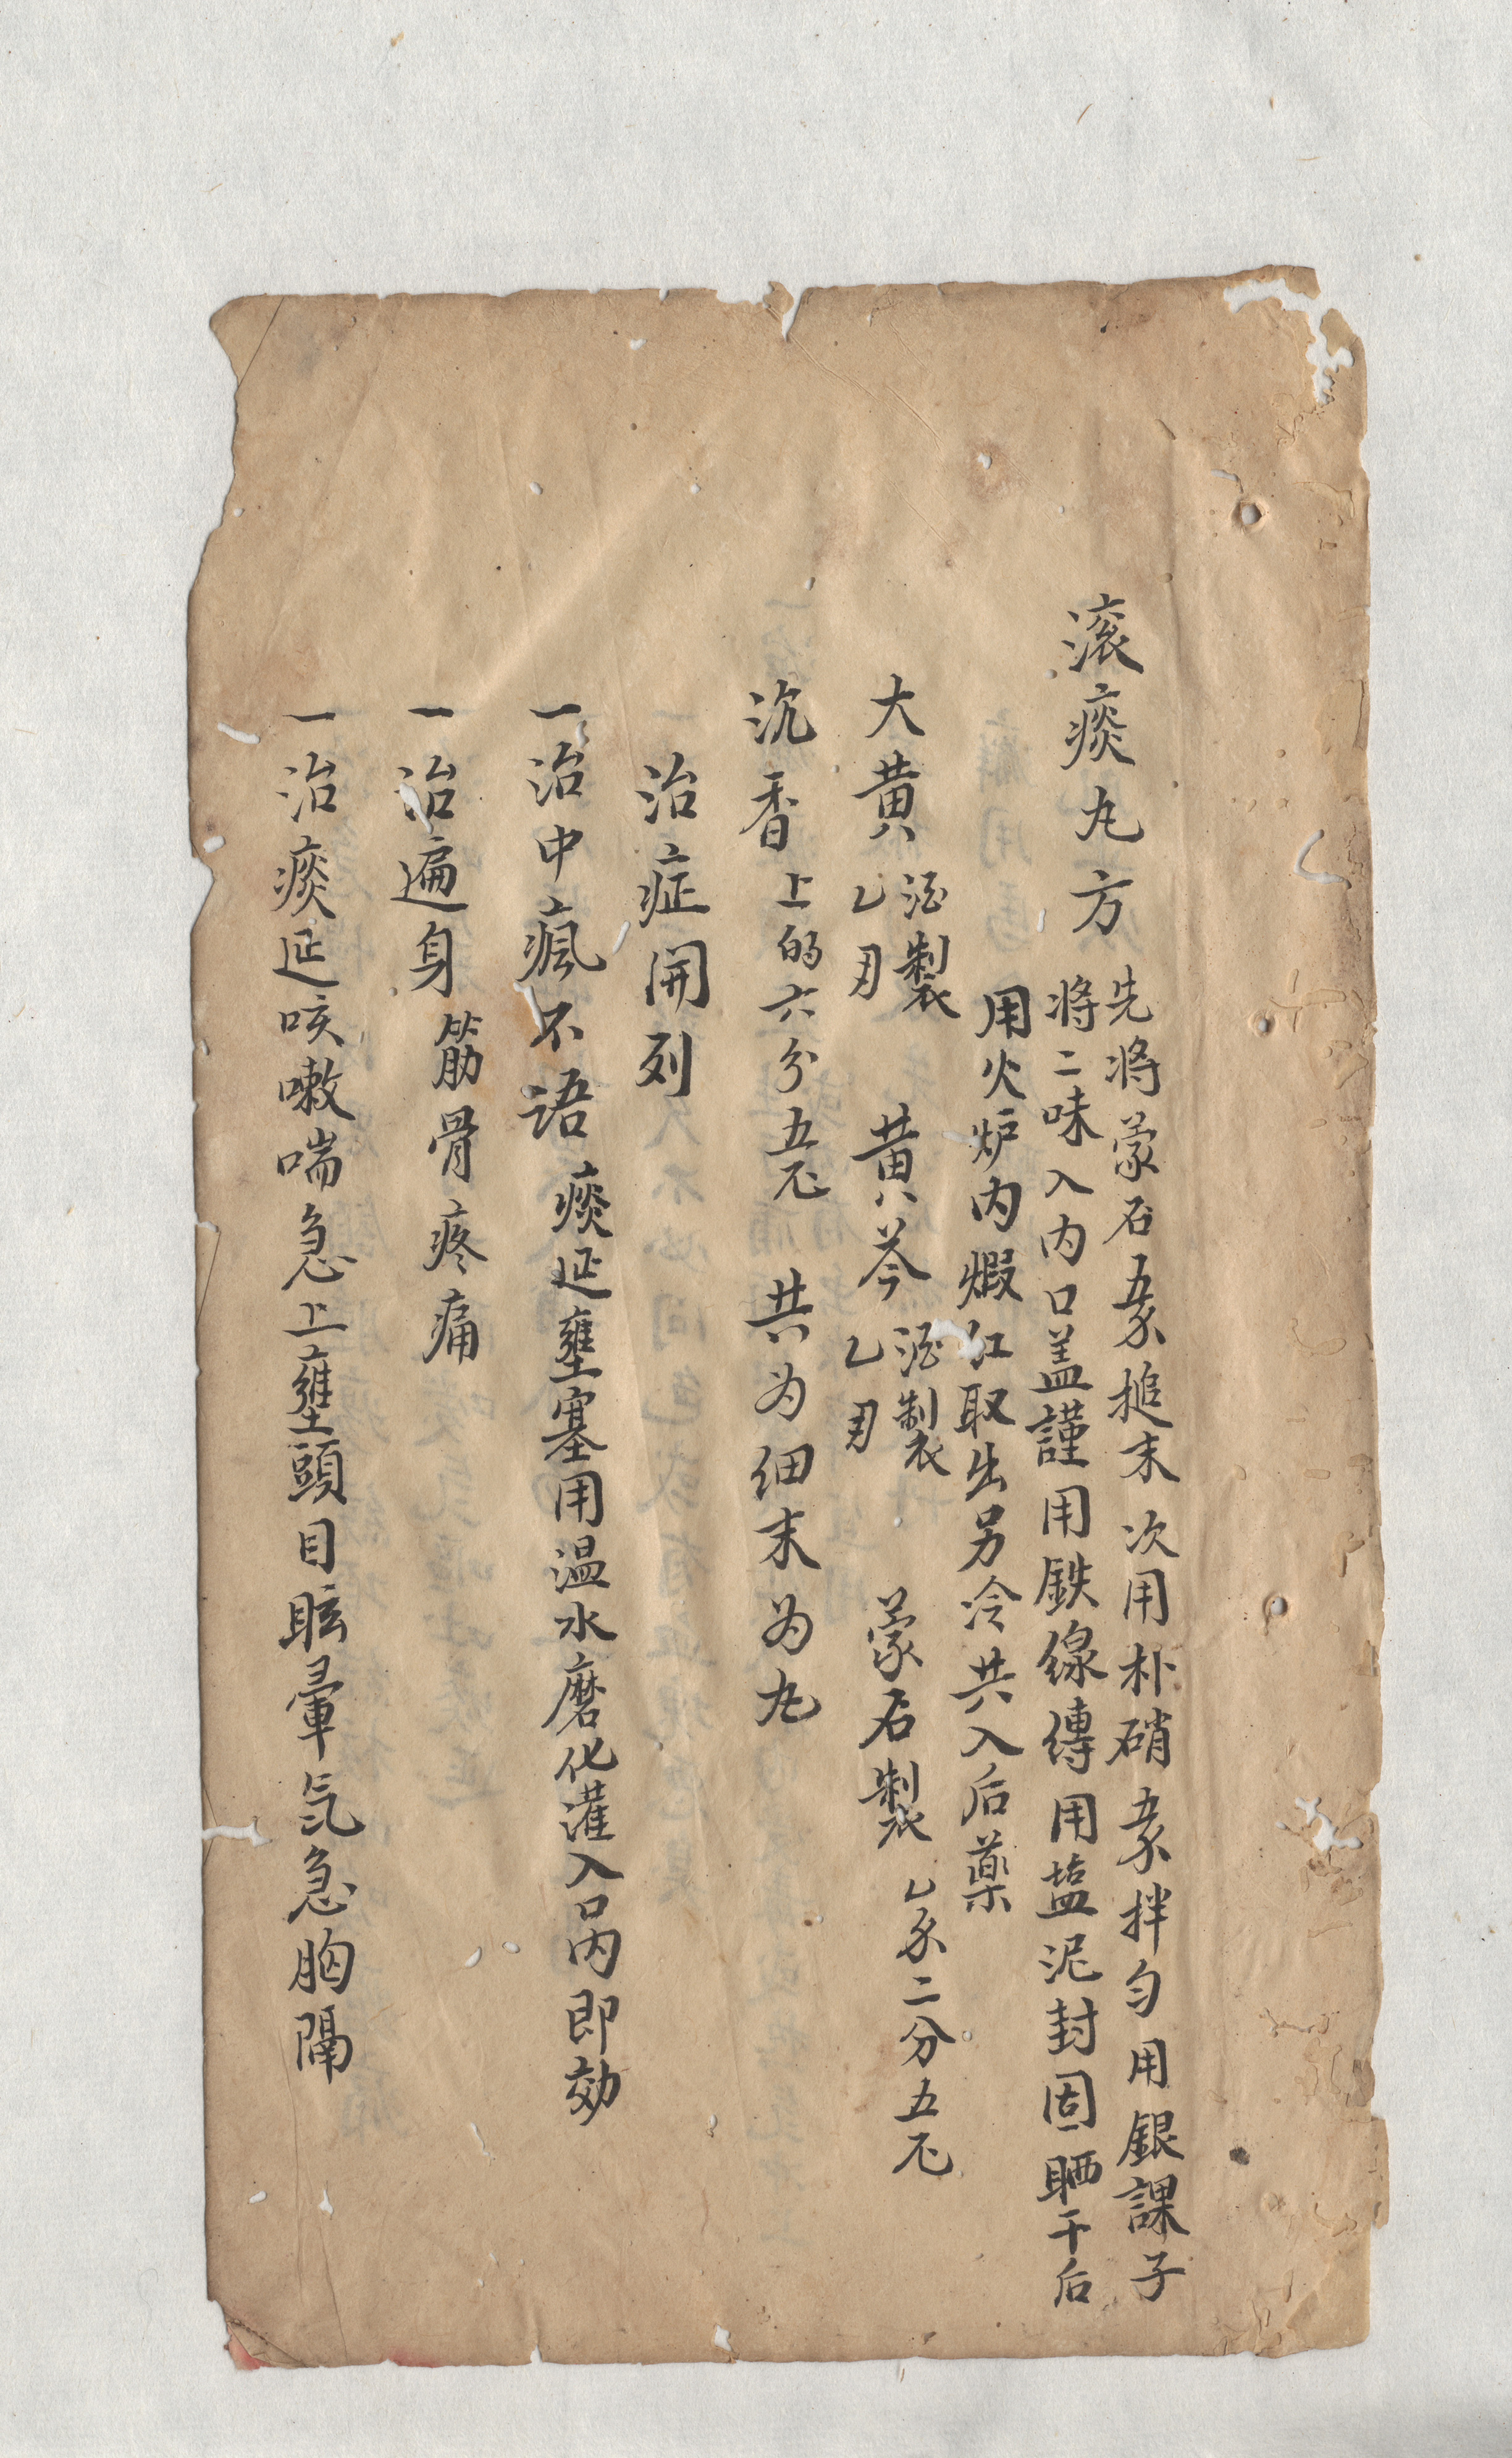 滚痰丸方
先將蒙石五錢搥末次用朴硝五錢拌勻用銀課子
將二味入內口盖謹用鉄線縳用塩泥封固晒干后
用火炉內煆红取出另冷共入后藥
大黄 酒製 乙刄 黄芩 酒製 乙刄 蒙石製 乙錢二分五厘
沉香 上的六分五厘 共为细末为丸
治症開列
一治中瘋不语痰延壅塞用温水磨化灌入口內即効
一治遍身筋骨疼痛
一治痰延咳嗽喘急上壅頭目眩暈気急胸隔